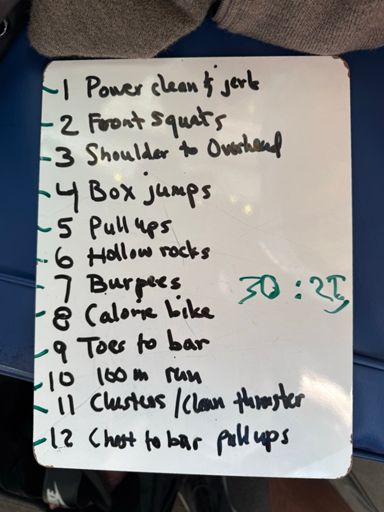 1 Power clean & jerk
2 Front squats
3 Shoulder to Overhead
4 Box jumps
5 Pull ups
6 Hollow rocks
7 Burpees
30:25
8 Calorie bike
9 Toes to bar
10 100 m run
11 Clusters / clean thruster
12 Chest to bar pull ups